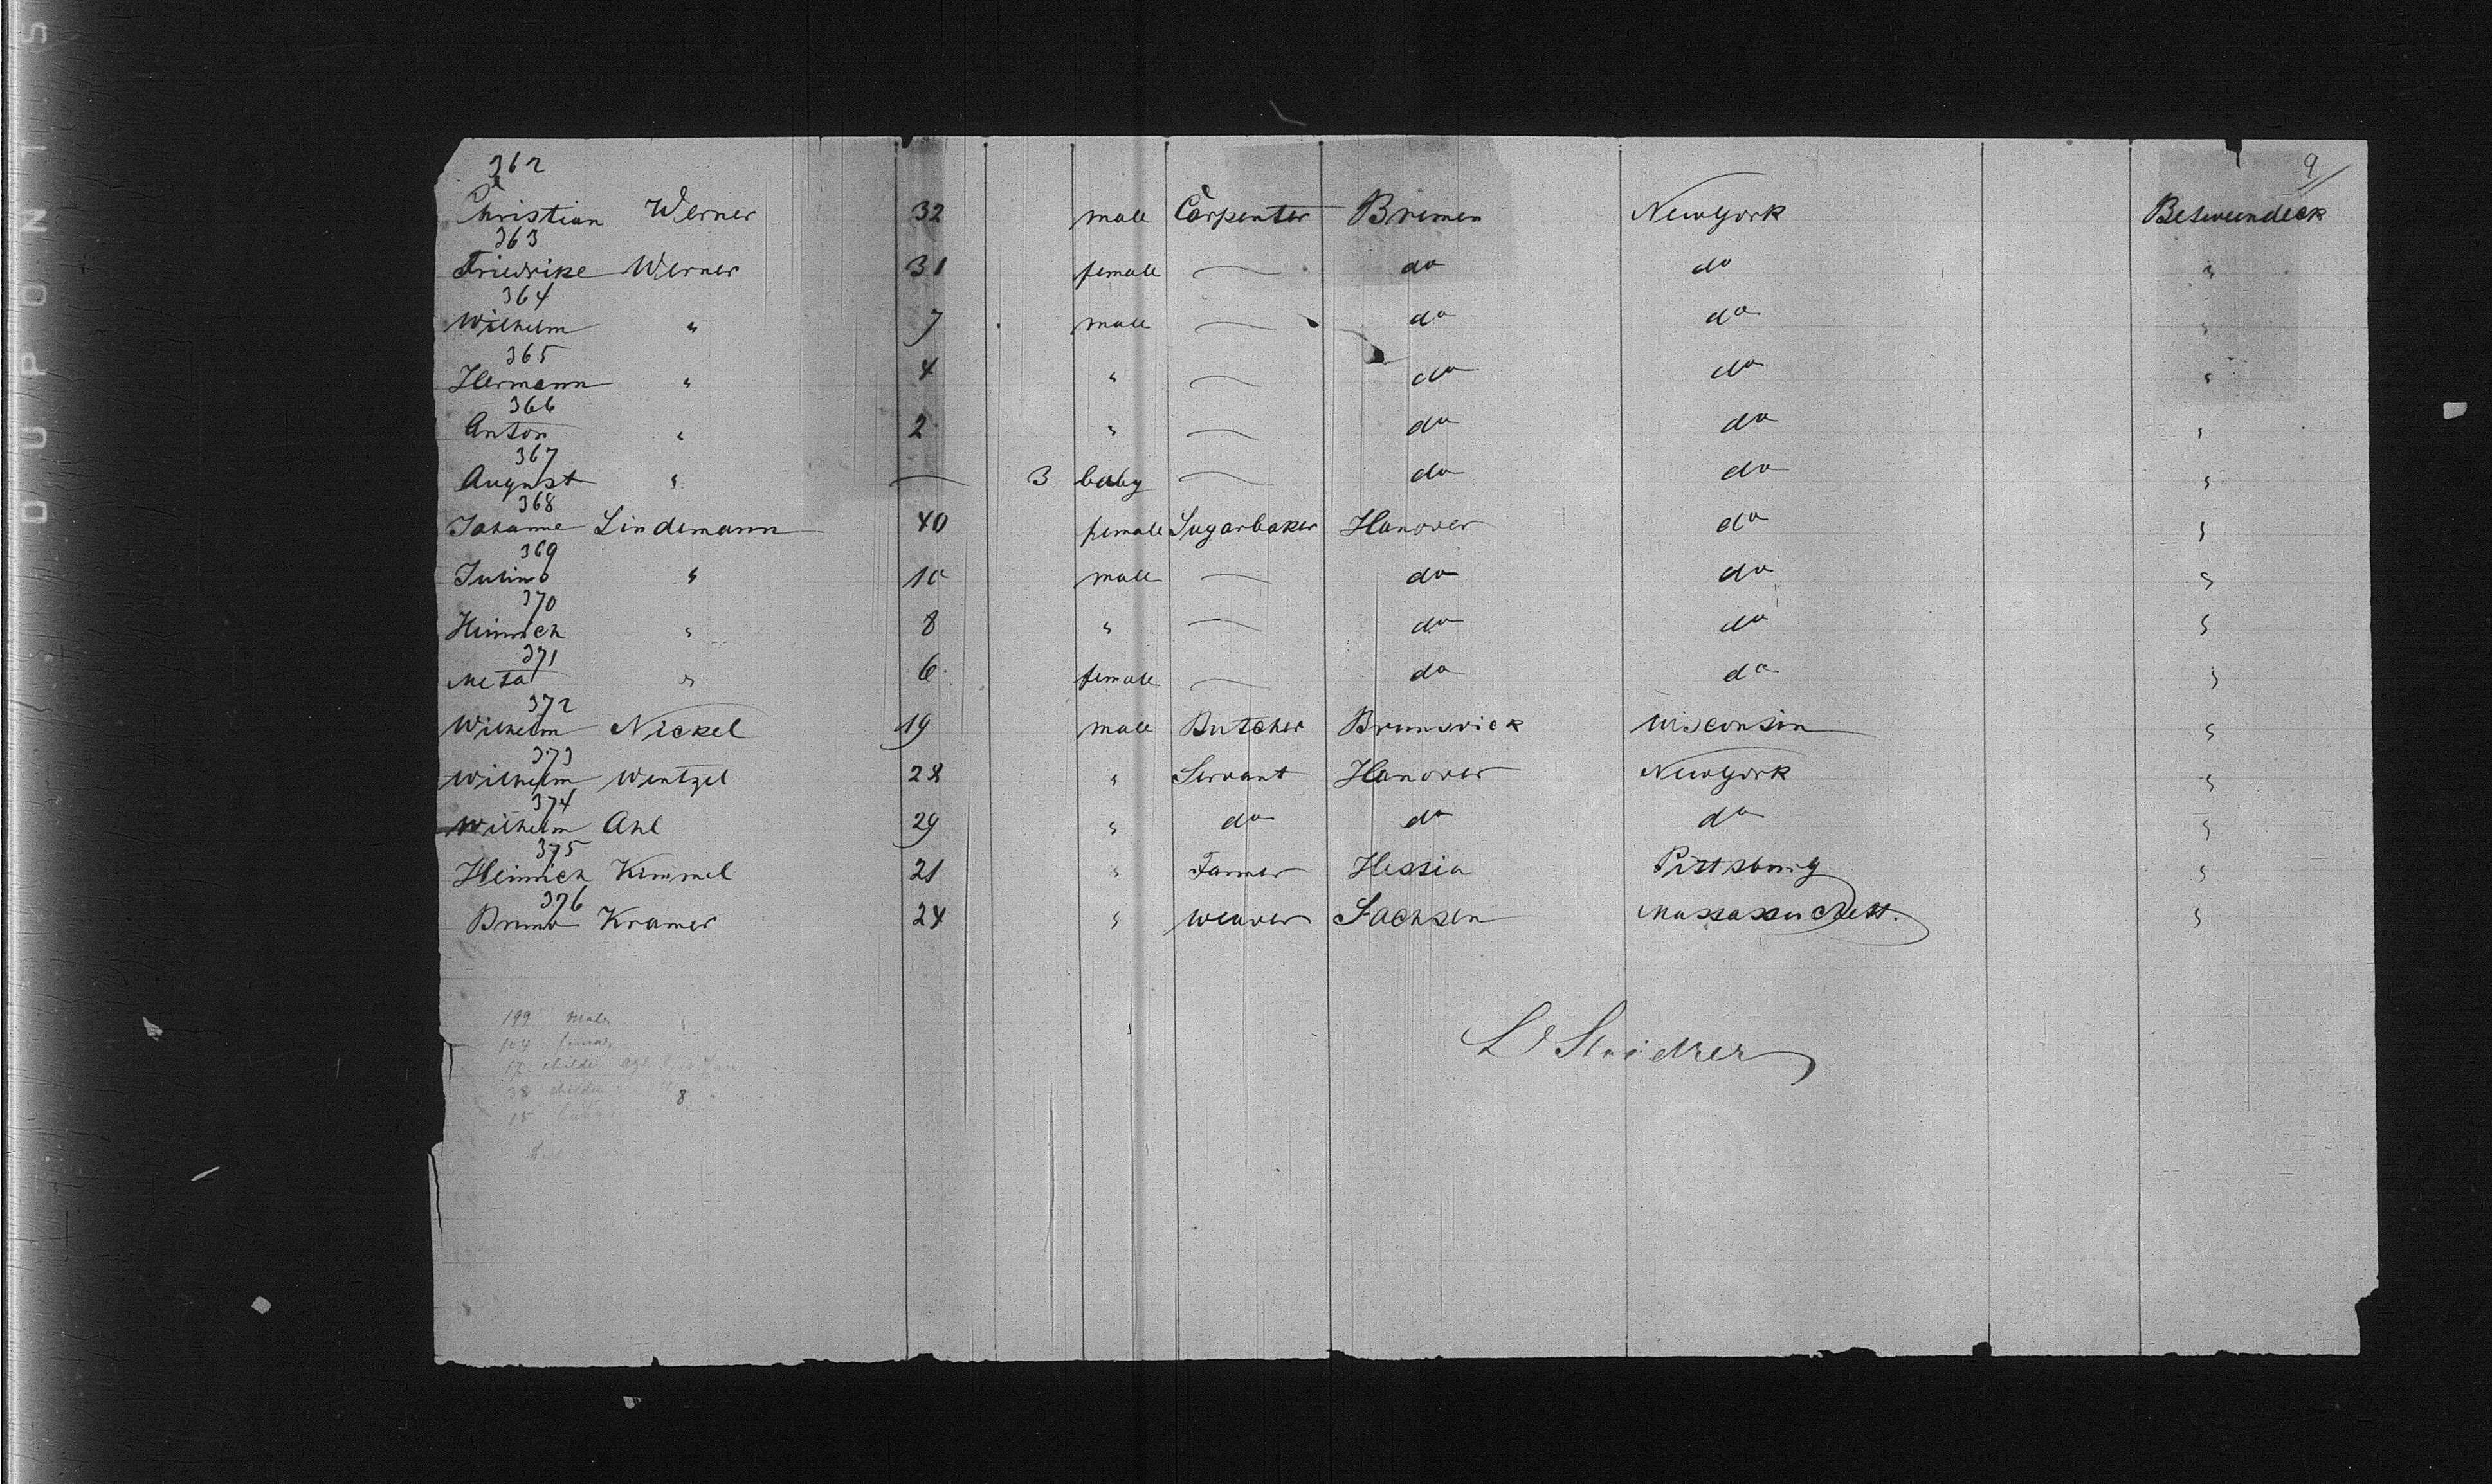 DUPONT S
9
362
Christian Werner 32 male Carpenter Bremen Newyork Betweendeck
363
Friedrike Werner 31 female — do do "
364
Wilhelm " 7 male — do do "
365
Hermann " 4 " — do do "
366
Anton " 2 " — do do "
367
August " — 3 baby — do do "
368
Johanne Lindemann 40 female Sugarbaker Hanover do "
369
Julius " 10 male — do do "
370
Heinrich " 8 " — do do "
371
Meta " 6 female — do do "
372
Wilhelm Nickel 19 male Butcher Brunsvick Wisconsin "
373
Wilhelm Wentzel 28 " Servant Hanover Newyork "
374
Wilhelm Ahl 29 " do do do "
375
Heinrich Kimmel 21 " Farmer Hessia Pittsburg "
376
Bruno Kramer 24 " weaver Sachsen Massassuchett. "
199 males
104 females
17 childr age
38 children 8 "
15